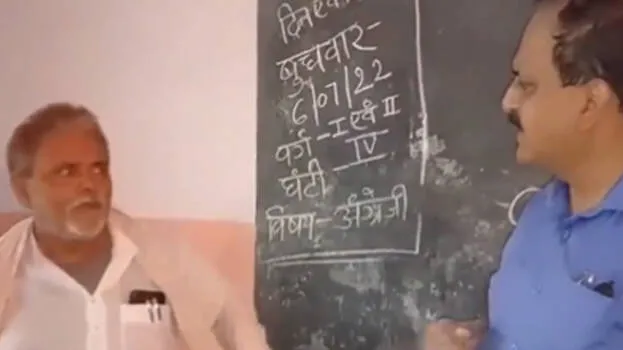 दिनांक
बुधवार-
6/07/22
वर्ग - I एवं II
घंटी - IV
विषय - अंग्रेजी